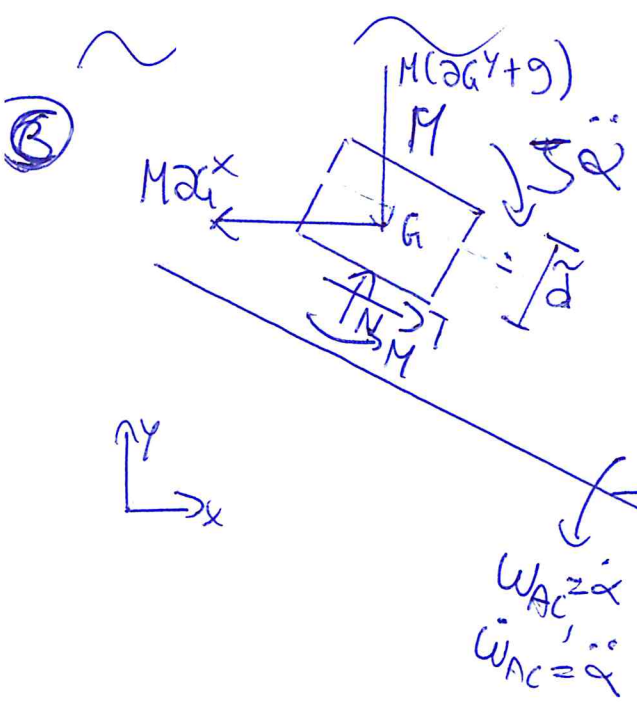 B
M(aG^y+g)
M
J α̈
Ma_G^x
G
d̃
N
T
M
y
x
ω_AC = α̇,
ω̇_AC = α̈